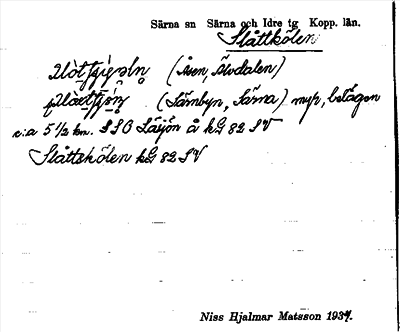 Särna sn Särna och Idre tg Kopp. län.
Slåttkölen
(Åsen, Älvdalen)
(Särnbyn, Särna) myr, belägen
c:a 5 1/2 km. SSO Läjön å kG 82 SV
Slåttshölen kG 82 SV
Niss Hjalmar Matsson 1937.